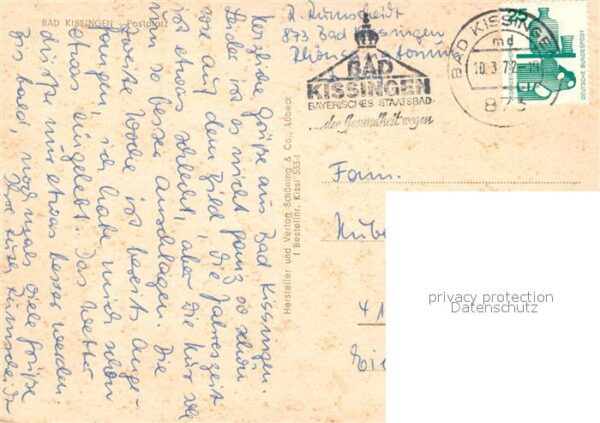 BAD KISSINGEN - Postplatz
Herzliche Grüße aus Bad Kissingen.
Leider ist es nicht ganz so schön
wie auf dem Bild, die Jahreszeit
ist etwas schlecht, aber die Kur soll
um so besser anschlagen. Die
zweite Woche ist bereits ange-
fangen, ich habe mich schon
etwas eingelebt. Das Wetter
dürfte nur etwas besser werden.
Bis bald und viele Grüße
Hersteller und Verlag Schöning & Co., Lübeck
Bestellnr. Kissi 535-1
873 Bad Kissingen
BAD
KISSINGEN
BAYERISCHES STAATSBAD
...der Gesundheit wegen
BAD KISSINGEN
md
10.3.72
873
25
DEUTSCHE BUNDESPOST
Fam.
41
privacy protection
Datenschutz